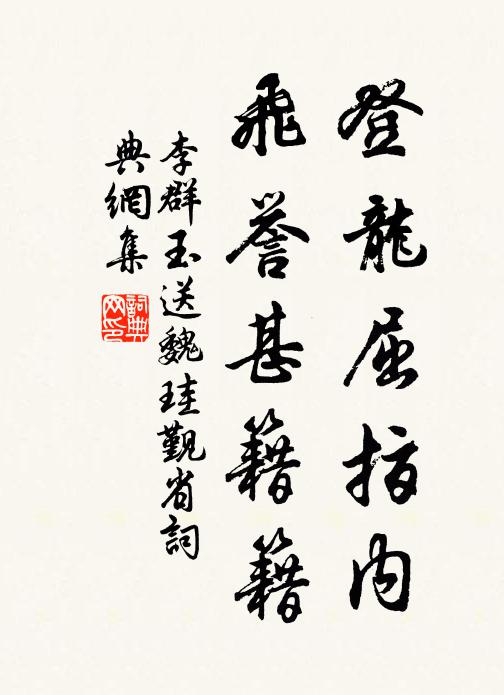 登龍屈指內
飛譽甚籍籍
李群玉送魏珪覲省詞
典網集
詞典
网印